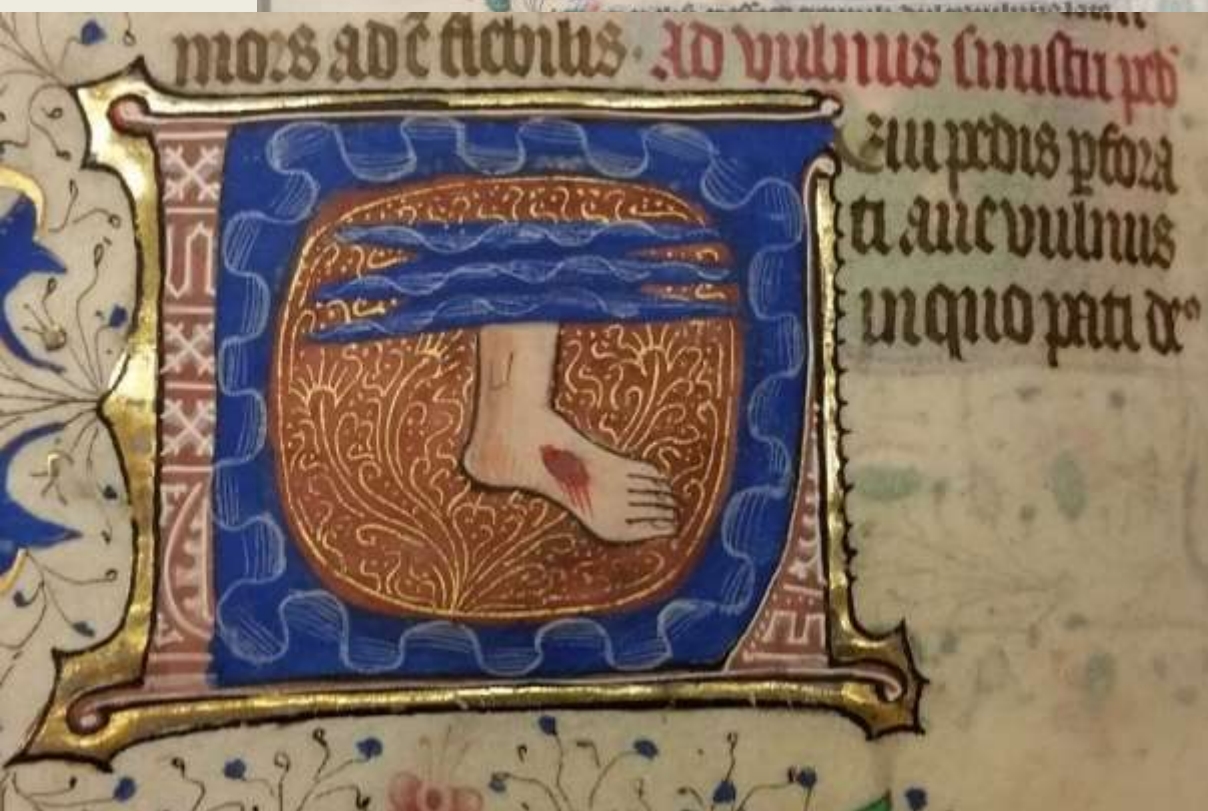 mors ad ē flebilis. Ad vulnus sinistri ped'
LEui pedis ꝑfora
ti aue vulnus
in quo pati de⁹